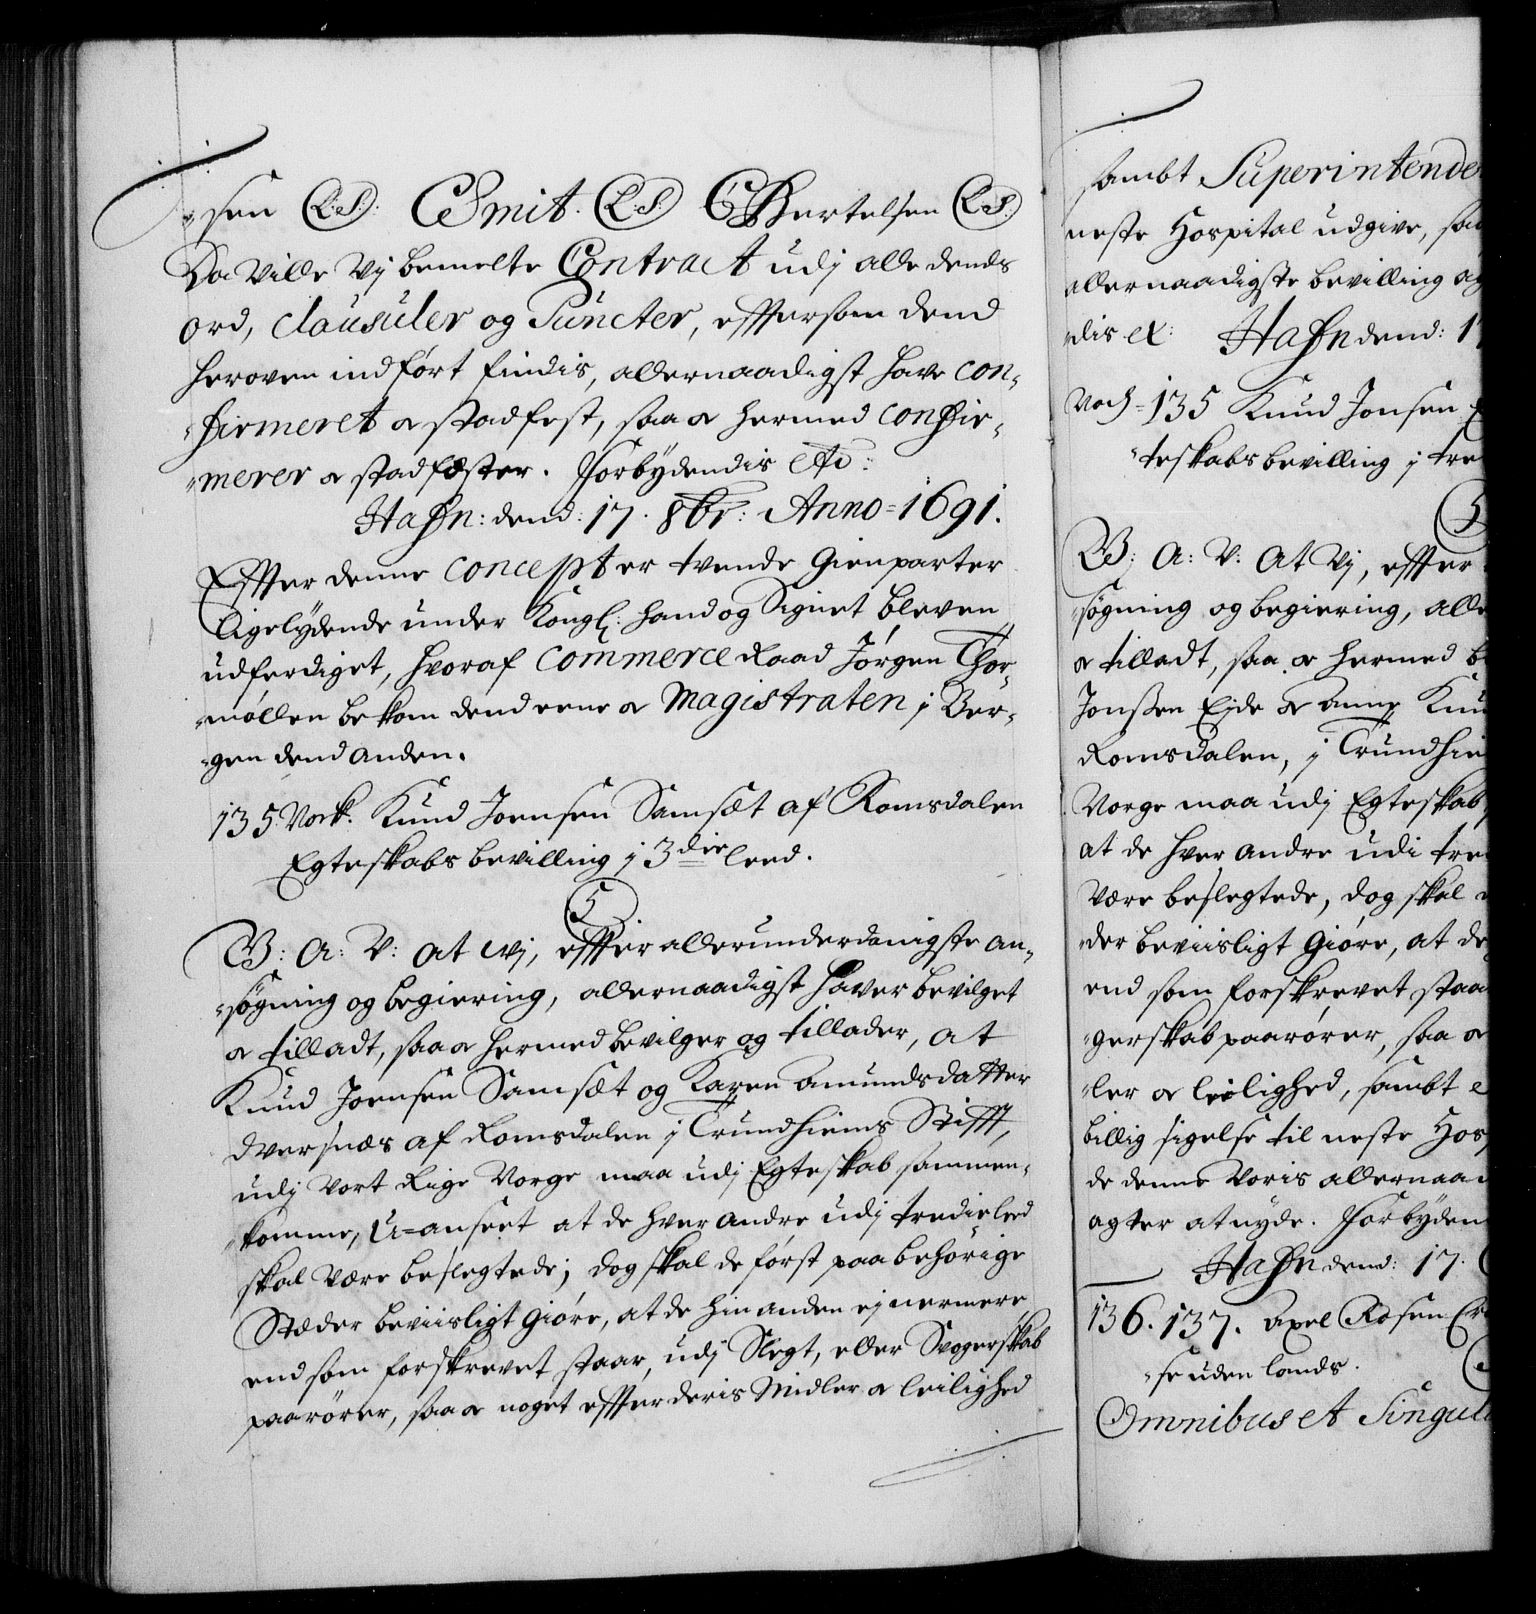 -sen (L:S:) C Smit. (L:S:) G Hertelsen (L:S:)
Da ville Vj bemelte Contract udj alle dends
ord, Clausuler og Puncter, effter som dend
heroven indført findis, allernaadigst have con-
-firmeret oc stadfest, saa oc hermed confir-
-merer oc stadfæster. Forbydendis etc:
Hafn: dend: 17. 8br: Anno=1691.
Effter denne concept er tvende Gienparter
ligelydende under Kongl: Hand og Signet bleven
udferdiget, hvoraf Commerce Raad Jørgen Thor-
-møllen bekom dend eene oc Magistraten j Ber-
-gen dend anden.
135 Vock. Knud Joensen Samsæt af Romsdalen
Egteskabs bevilling j 3die leed.
5
B: A: V: At wj, effter allerunderdanigste an-
-søgning og begiering, allernaadigst haver bevilget
oc tilladt, saa oc hermed bevilger og tillader, at
Knud Joensen Samsæt og Karen Amundsdatter
Dversnæs af Romsdalen j Trundhiems Stifft,
udj vort Rige Norge maa udj Egteskab sammen-
-komme, U-anseet at de hver andre udj tredie leed
skal være beslegtede; dog skal de først paa behørige
Stæder beviisligt giøre, at de hin anden ej nermere
end som forskrevet staar, udj Slegt, eller Svogerskab
paarører, saa oc noget effter deris Midler oc leilighed
sambt Superintende
neste Hospital udgive, saa
allernaadigste bevilling ag
-dis etc: Hafn dend: 17
Noch=135 Knud Jonsen E
-teskabs bevilling j tre
5
B: A: V: At Vj, effter
-søgning og begiering, alle
oc tilladt, saa oc hermed be
Jonssen Eide oc Anne Knu
Romsdalen, j Trundhie
Norge maa udj Egteskab
at de hver andre udi tre
være beslegtede, dog skal
-der beviisligt giøre, at de
end som forskrevet staa
-gerskab paarører, saa oc
-ler oc leilighed, sambt e
billig sigelse til neste Hos
de denne Voris allernaa
agter at nyde. Forbyden
Hafn dend: 17.
136. 137. Axel Rosen Cr
-se uden lands.
Omnibus et Singul